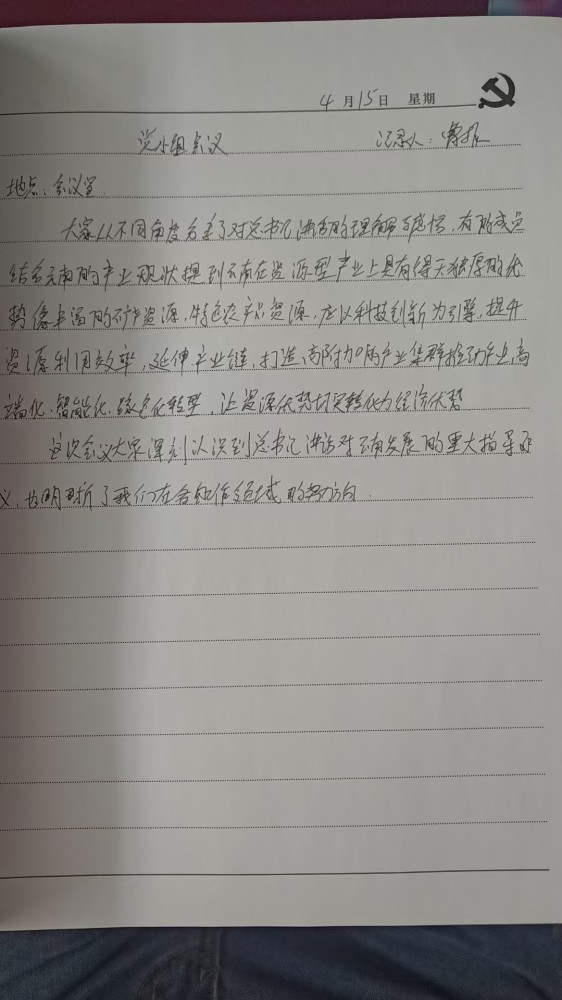 4月15日 星期
党小组会议 记录人：
地点：会议室
大家从不同角度分享了对总书记讲话的理解与感悟，有的成员
结合云南的产业现状提到云南在资源型产业上具有得天独厚的优
势像丰富的矿产资源，特色农产品资源，应以科技创新为引擎，提升
资源利用效率，延伸产业链，打造高附加的产业集群推动产业高
端化、智能化、绿色化转型，让资源优势切实转化为经济优势
这次会议大家深刻认识到总书记讲话对云南发展的重大指导意
义，也明晰了我们在各自工作领域的努力方向.